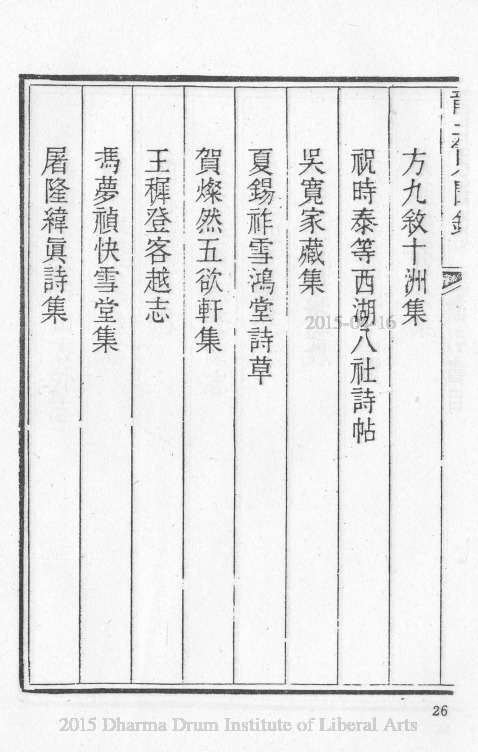 方九敘十洲集
祝時泰等西湖八社詩帖
吳寬家藏集
夏錫祚雪鴻堂詩草
賀燦然五欲軒集
王穉登客越志
馮夢禎快雪堂集
屠隆緯眞詩集
2015-02-16
26
2015 Dharma Drum Institute of Liberal Arts